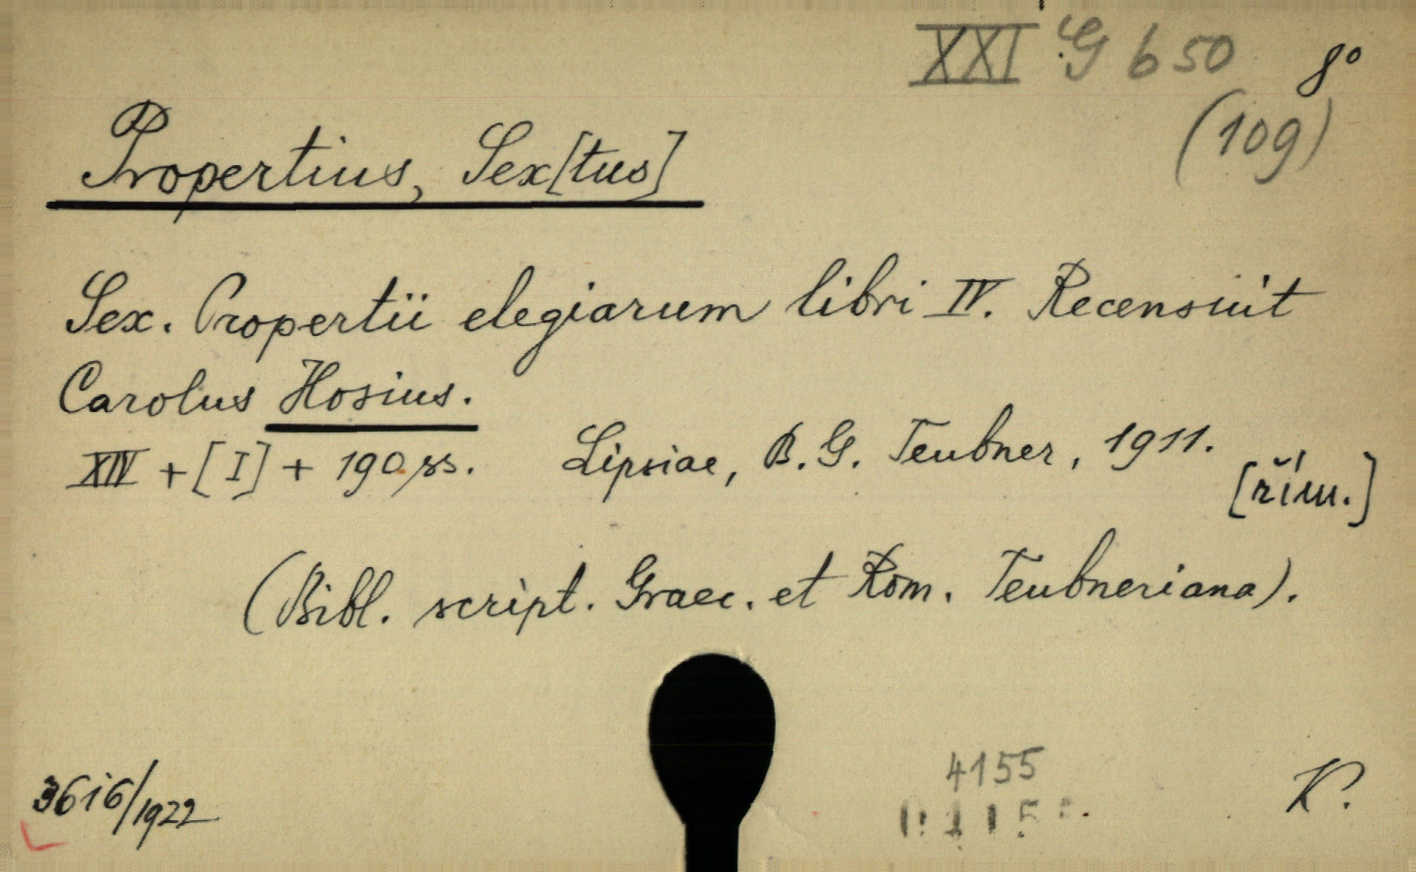 XXI G b 50 8°
(109)
Propertius, Sex[tus]
Sex. Propertii elegiarum libri IV. Recensuit
Carolus Hosius.
XIV + [I] + 190 ss. Lipsiae, B. G. Teubner, 1911.
[řím.]
(Bibl. script. Graec. et Rom. Teubneriana).
4155
3616/1922
K.